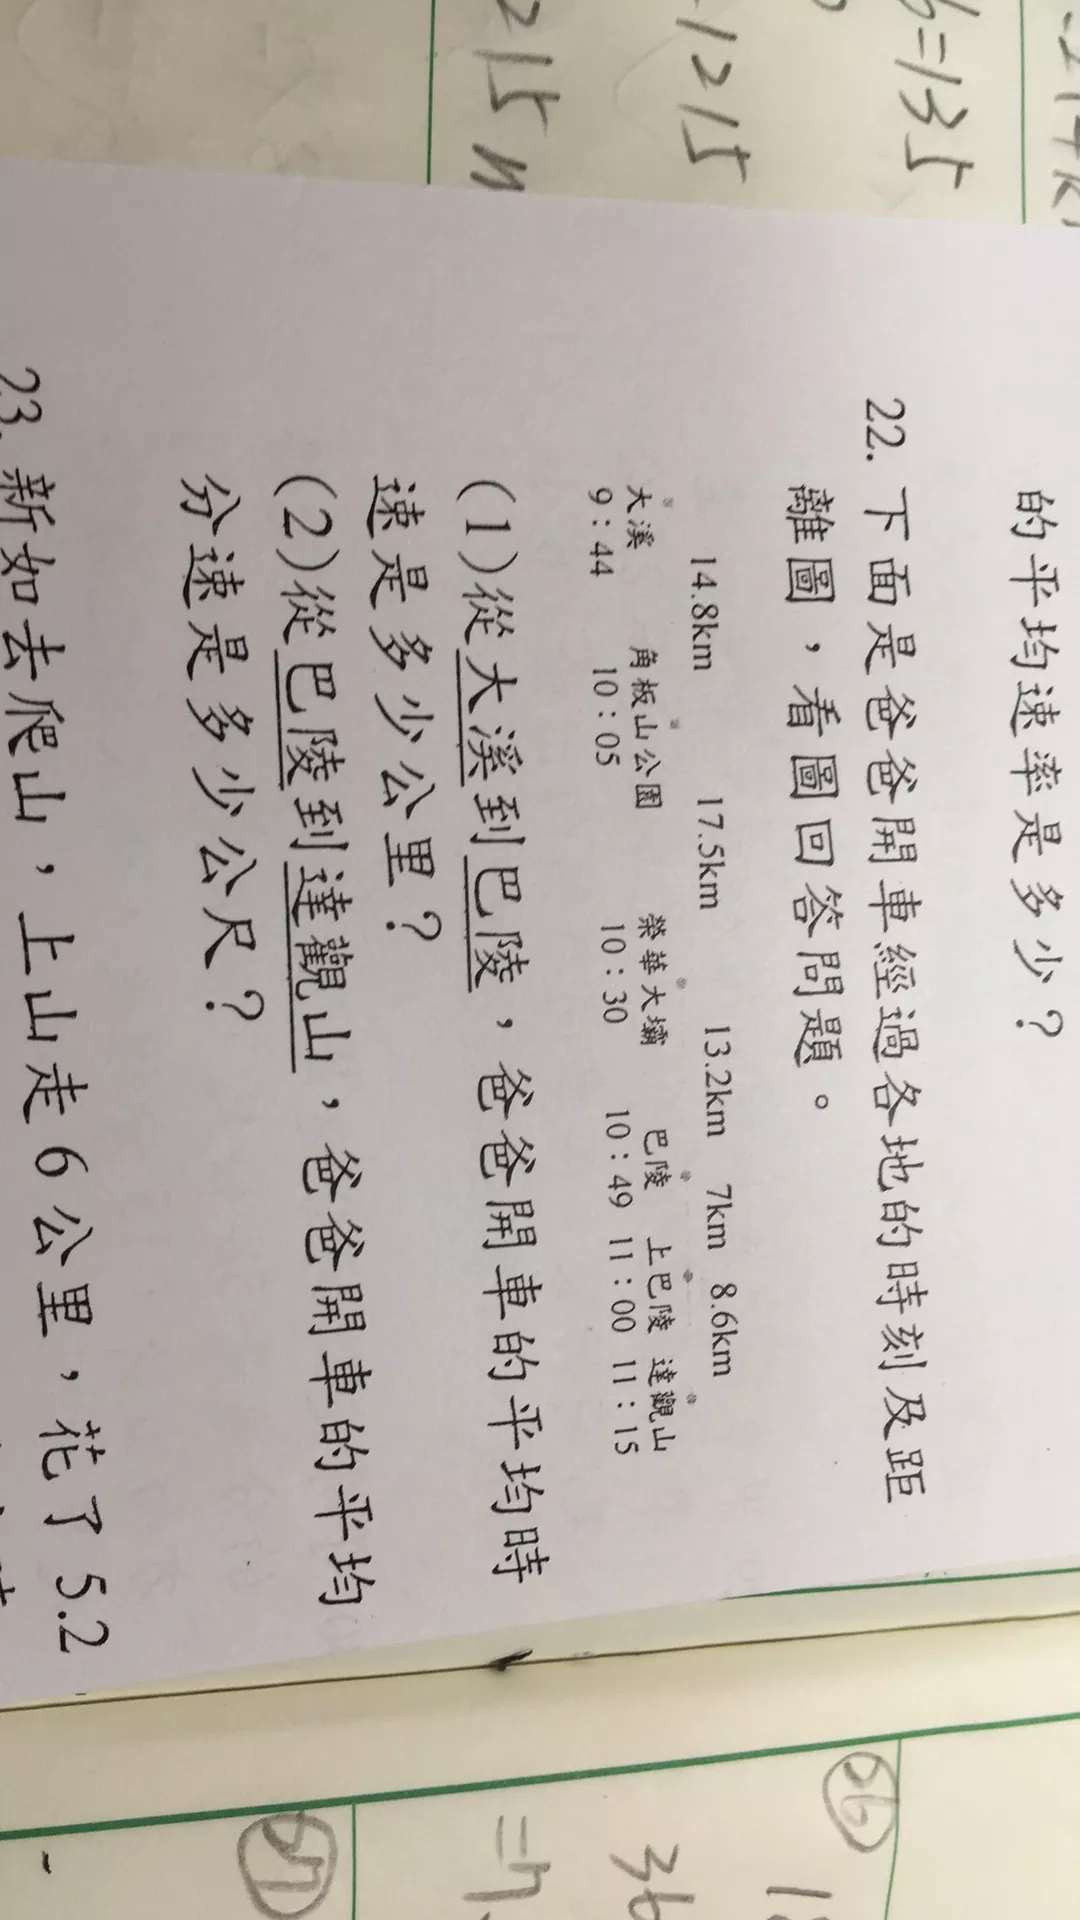 的平均速率是多少？
22. 下面是爸爸開車經過各地的時刻及距
離圖，看圖回答問題。
14.8km 17.5km 13.2km 7km 8.6km
大溪 角板山公園 榮華大壩 巴陵 上巴陵 達觀山
9：44 10：05 10：30 10：49 11：00 11：15
(1)從大溪到巴陵，爸爸開車的平均時
速是多少公里？
(2)從巴陵到達觀山，爸爸開車的平均
分速是多少公尺？
23. 新如去爬山，上山走6公里，花了5.2
=135
1215
215
36
36
37